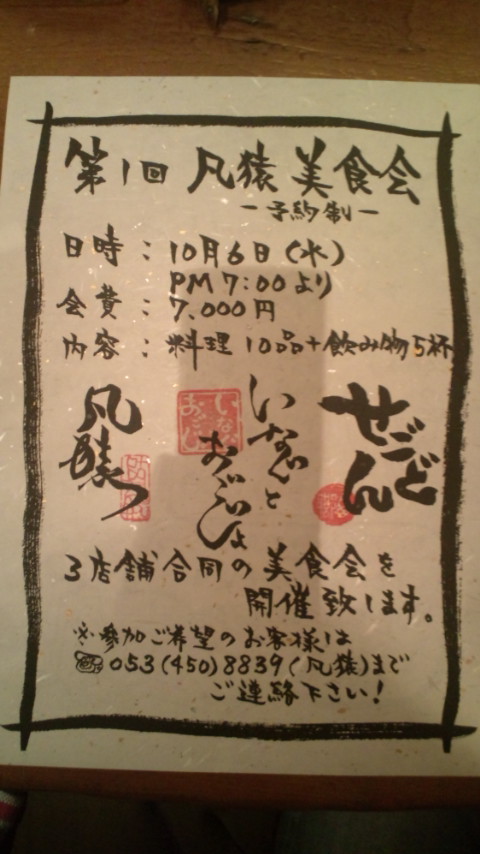 第1回 凡猿 美食会
ー予約制ー
日時：10月6日（水）
PM 7:00より
会費：7,000円
内容：料理10品+飲み物5杯
せごどん
いなせと
おごじょ
凡猿
3店舗合同の美食会を
開催致します。
※参加ご希望のお客様は
☎053(450)8839(凡猿)まで
ご連絡下さい！